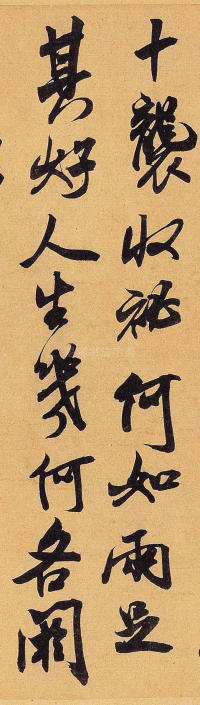 十襲收祕何如兩足
其好人生幾何各閼